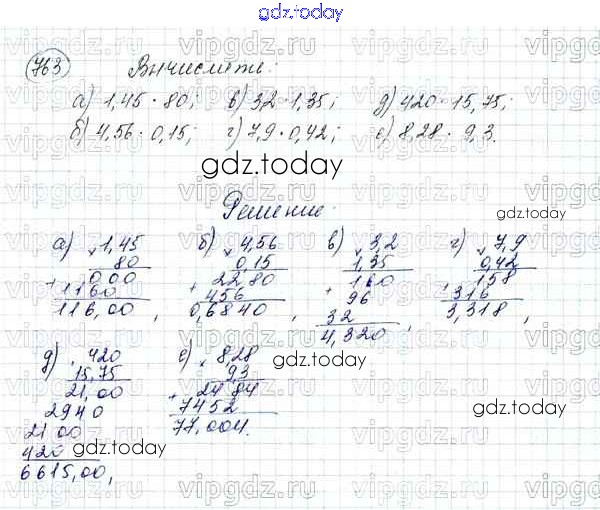 gdz.today
763 Вычислите:
а) 1,45 · 80; в) 3,2 · 1,35; д) 420 · 15,75;
б) 4,56 · 0,15; г) 7,9 · 0,42; е) 8,28 · 9,3.
gdz.today
Решение:
gdz.today
а) × 1,45 б) × 4,56 в) × 3,2 г) × 7,9
80 0,15 1,35 0,42
+ 000 + 2280 + 160 + 158
1160 456 96 316
116,00, 0,6840, 32 3,318,
4,320,
gdz.today
д) × 420 е) × 8,28
15,75 9,3
21,00 + 2484
2940 7452
2100 77,004.
420
6615,00,
gdz.today
gdz.today
vipgdz.ru